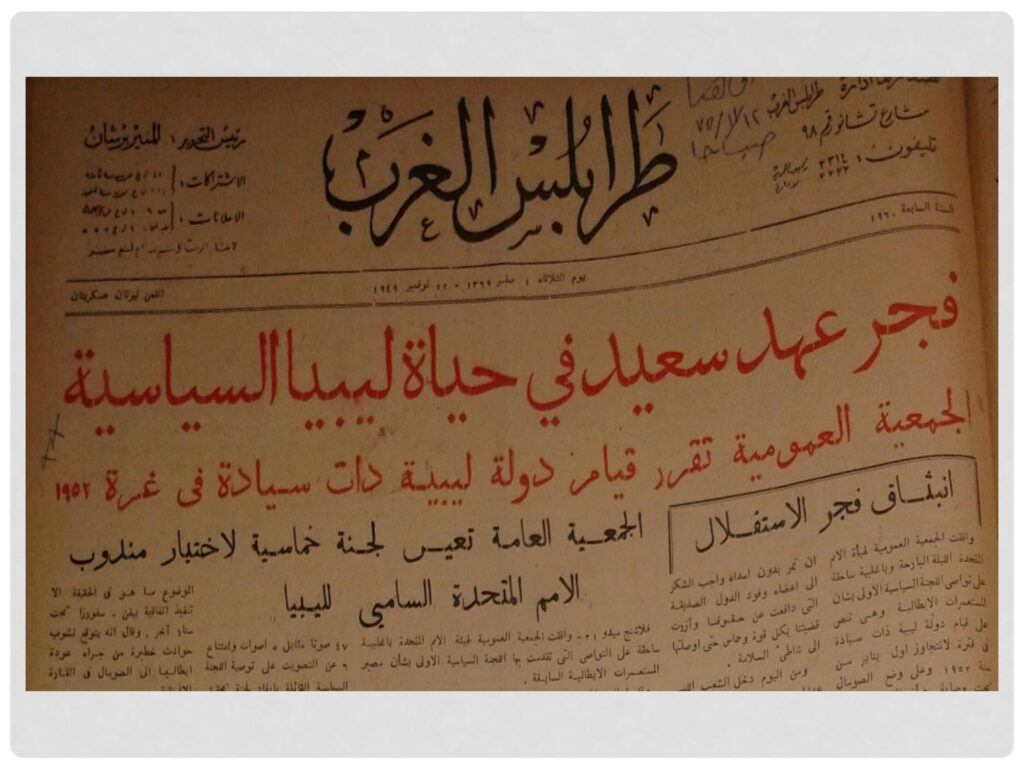 تصدرها ادارة طرابلس الغرب
بشارع تشانو رقم ٩٨
تليفون: ٢٣١٤
٢٢٢٢
٧٥/١/١٢
صباحا
طرابلس الغرب
رئيس التحرير: المنير برشان
الاشتراكات:
الاعلانات:
السنة السابعة ١٩٦٠
يوم الثلاثاء ١ صفر ١٣٦٩ - ٢٢ نوفمبر ١٩٤٩
الثمن ليرتان عسكريتان
فجر عهد سعيد في حياة ليبيا السياسية
الجمعية العمومية تقرر قيام دولة ليبية ذات سيادة في غرة ١٩٥٢
انبثاق فجر الاستقلال
وافقت الجمعية العمومية لهيأة الامم
المتحدة الليلة البارحة وباغلبية ساحقة
على تواصى اللجنة السياسية الاولى بشأن
المستعمرات الايطالية وهى تنص
على قيام دولة ليبية ذات سيادة
فى فترة لاتتجاوز اول يناير سن
سنة ١٩٥٢ وعلى وضع الصومال
ان نمر بدون اسداء واجب الشكر
الى اعضاء وفود الدول الصديقة
التى دافعت عن حقوقنا وآزرت
قضيتنا بكل قوة وحماس حتى اوصلتها
الى شاطئ السلامة.
ومن اليوم دخل الشعب الليبى
الجمعية العامة تعين لجنة خماسية لاختيار مندوب
الامم المتحدة السامي لليبيا
فلاشنج ميدو ٢١- وافقت الجمعية العمومية لهيئة الامم المتحدة باغلبية
ساحقة على التواصى التى تقدمت بها اللجنة السياسية الاولى بشأن مصير
المستعمرات الايطالية السابقة.
٤٧ صوتا مقابل ٥ اصوات وامتناع
٦ عن التصويت على توصية اللجنة
السياسية القائلة بانفاذ لجنة تحقيق
الموضوع ما هو فى الحقيقة الا
تنفيذ اتفاقية بيفن - سفورزا تحت
ستار آخر. وقال انه يتوقع نشوب
حوادث خطيرة من جراء عودة
ايطاليا الى الصومال فى القارة
الافريقية